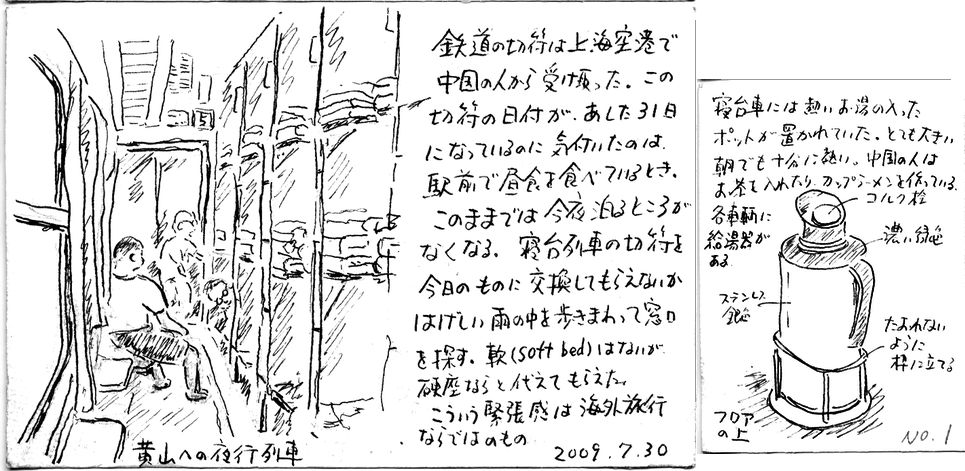 鉄道の切符は上海空港で
中国の人から受け取った。この
切符の日付が、あした31日
になっているのに気付いたのは、
駅前で昼食を食べているとき。
このままでは今夜泊るところが
なくなる。寝台列車の切符を
今日のものに交換してもらえないか
はげしい雨の中を歩きまわって窓口
を探す。軟(soft bed)はないが
硬座ならと代えてもらえた。
こういう緊張感は海外旅行
ならではのもの
2009.7.30
黄山への夜行列車
寝台車には熱いお湯の入った
ポットが置かれていた。とても大きい
朝でも十分に熱い。中国の人は
お茶を入れたり、カップラーメンを作っている。
各車輌に
給湯器が
ある
コルク栓
濃い緑色
ステンレス
銀色
たおれない
ように
枠に立てる
フロア
の上
NO.1